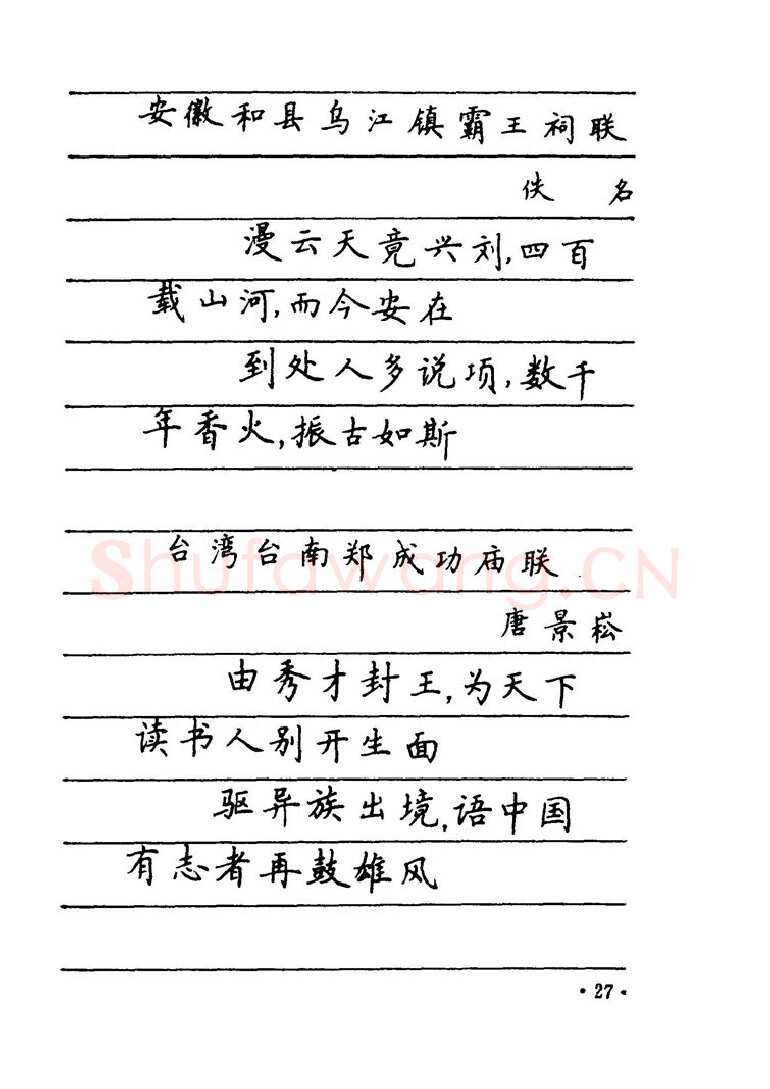 安徽和县乌江镇霸王祠联
佚 名
漫云天竟兴刘,四百
载山河,而今安在
到处人多说项,数千
年香火,振古如斯
台湾台南郑成功庙联
唐景崧
由秀才封王,为天下
读书人别开生面
驱异族出境,语中国
有志者再鼓雄风
·27·
Shufawang.CN